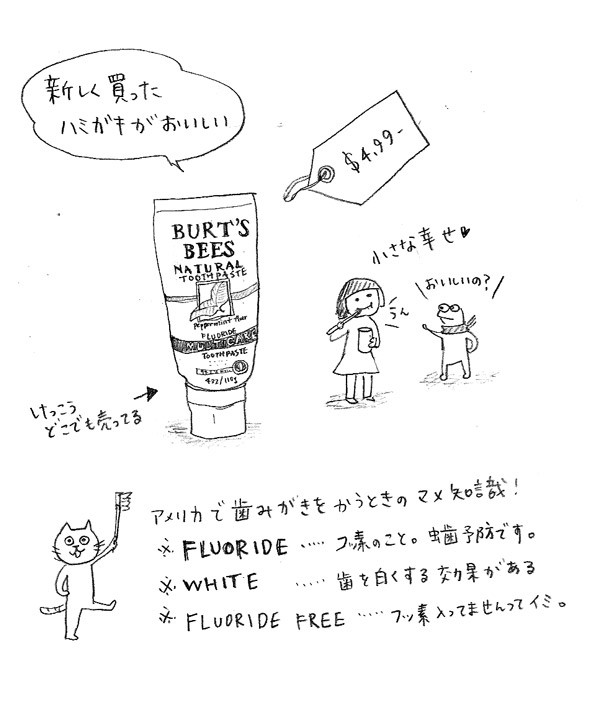 新しく買った
ハミガキがおいしい
$4.99-
BURT'S
BEES
NATURAL
TOOTHPASTE
Peppermint
FLUORIDE
MULTICARE
TOOTHPASTE
小さな幸せ♥
おいしいの?
うん
けっこう
どこでも売ってる
アメリカで歯みがきをかうときのマメ知識!
※ FLUORIDE ..... フッ素のこと。虫歯予防です。
※ WHITE ..... 歯を白くする効果がある
※ FLUORIDE FREE ..... フッ素入ってませんってイミ。